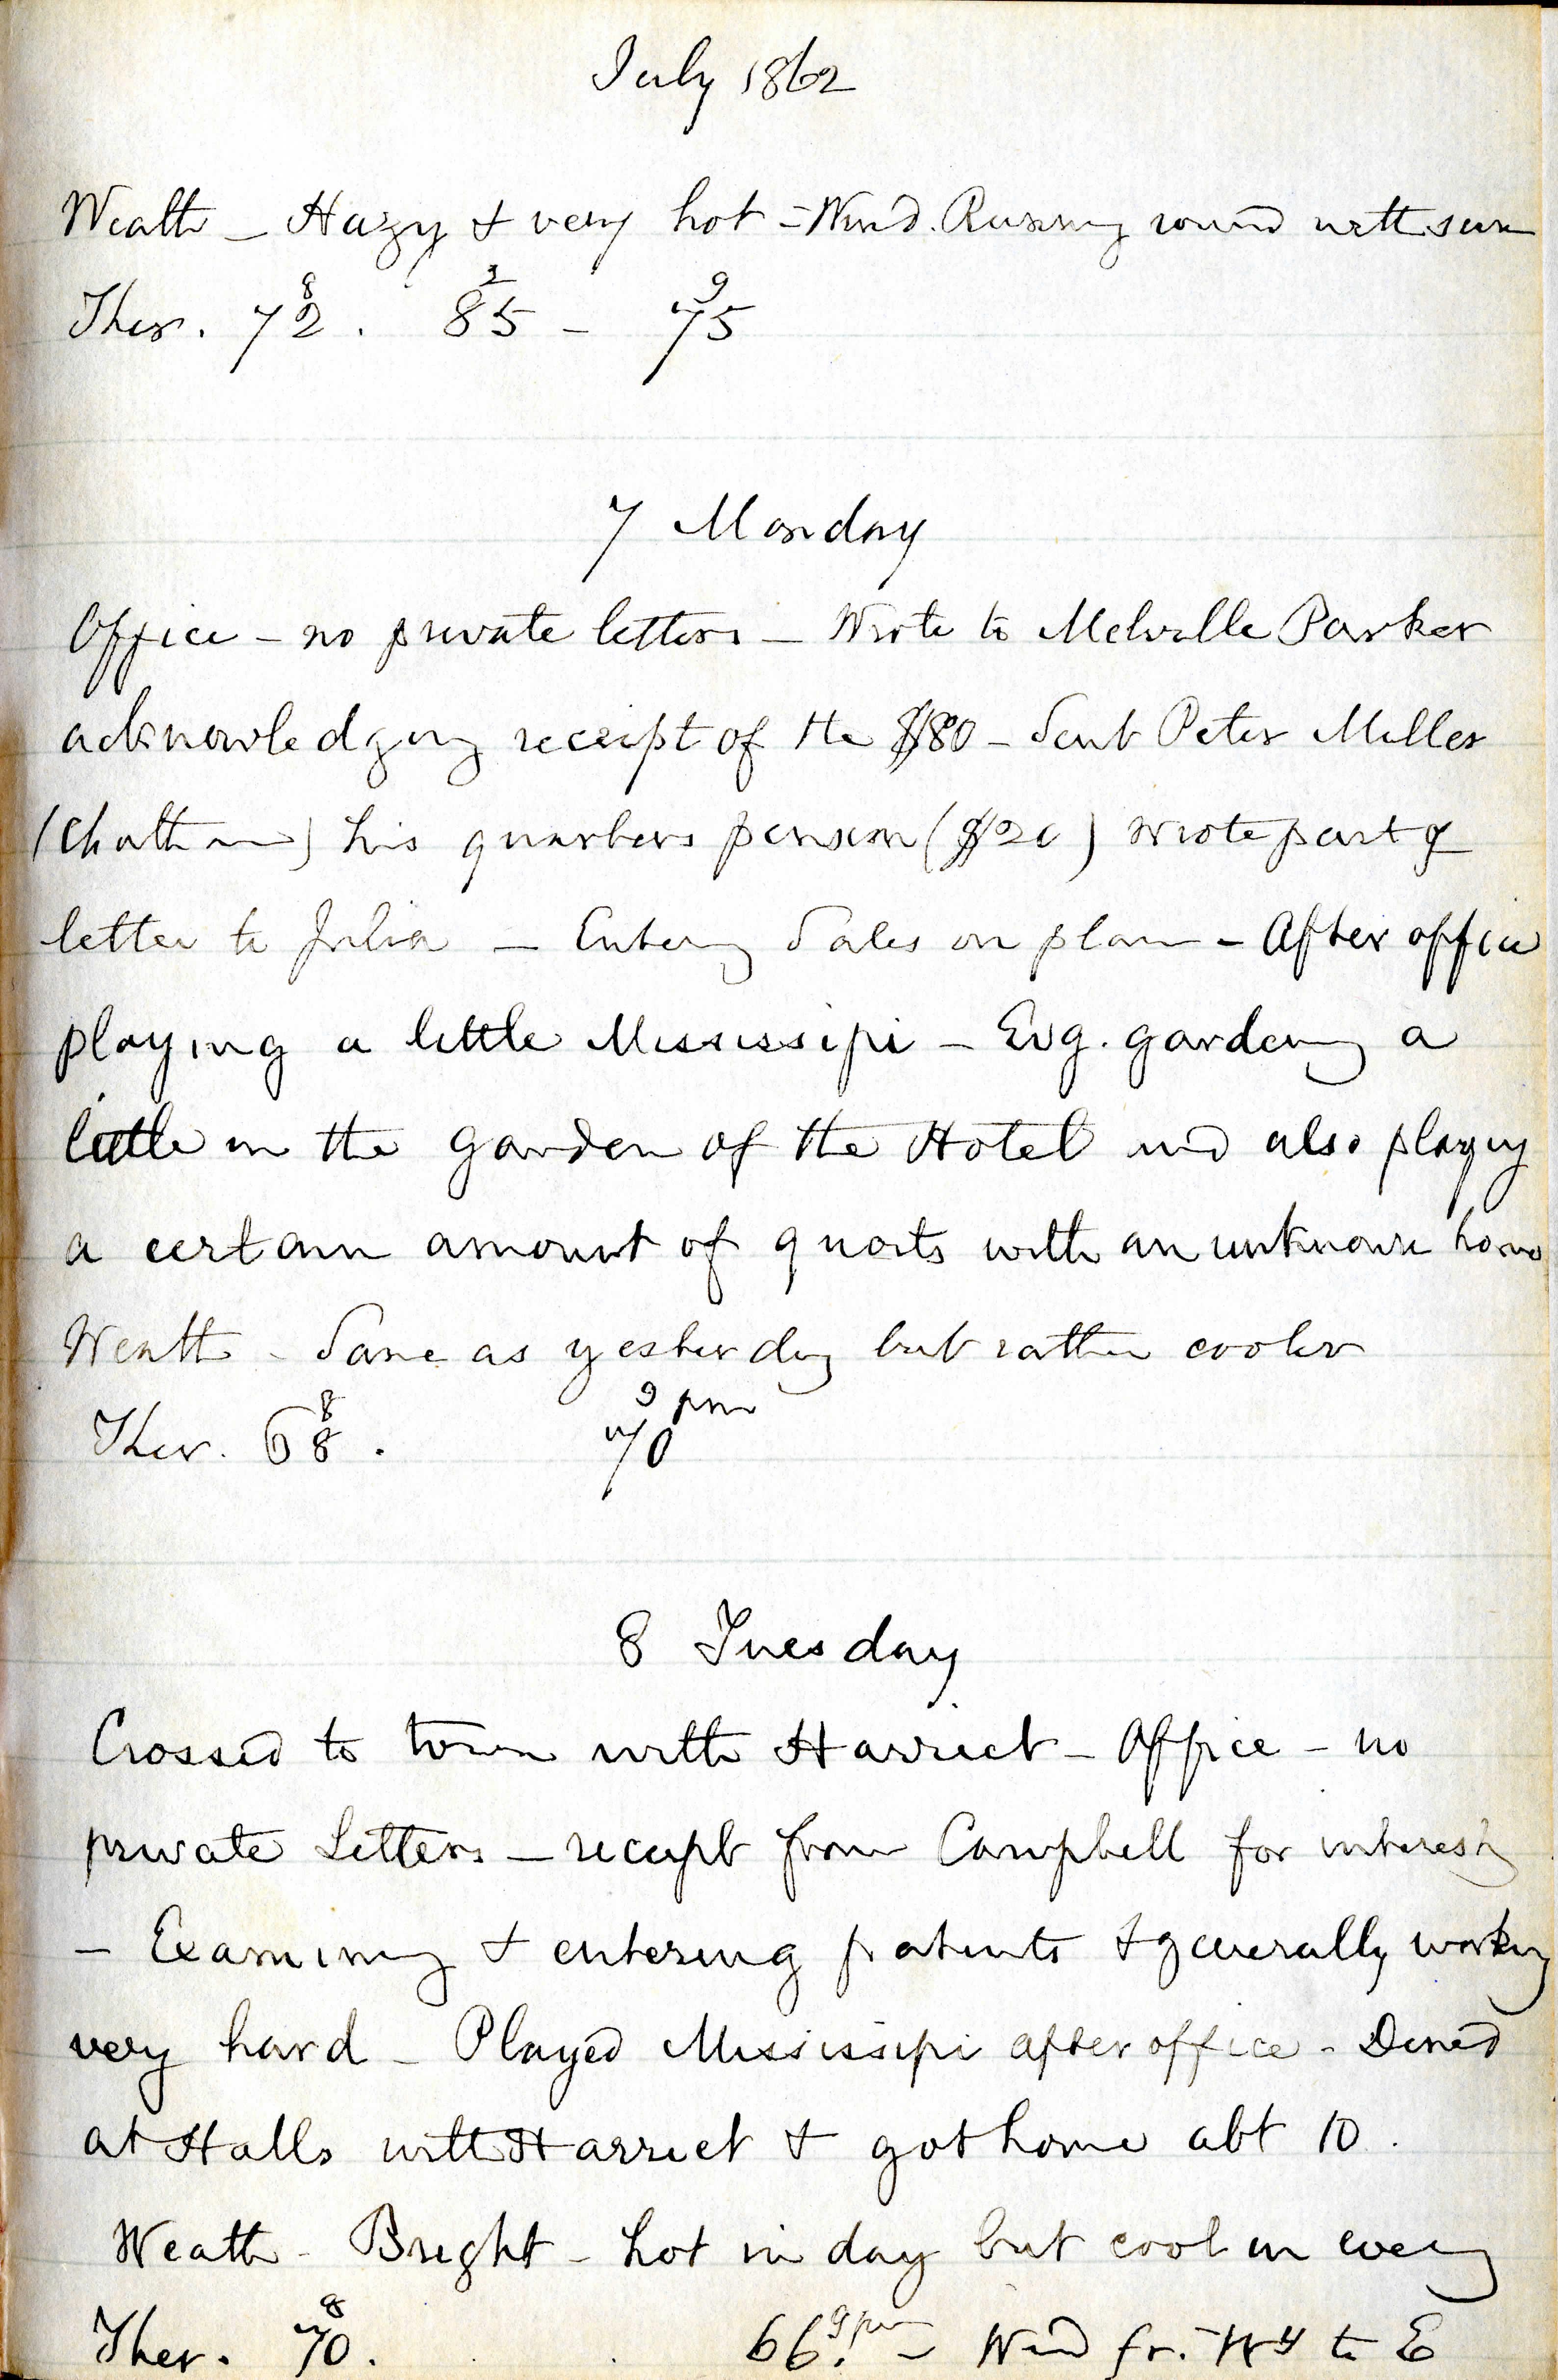 July 1862
Weath - Hazy & very hot - Wind. Running round with sun
8 2 9
Ther. 72. 85 - 75
7 Monday
Office - no private letters - Wrote to Melville Parker
acknowledging receipt of the $80 - Sent Peter Miller
(Chatham) his quarters pension ($20) wrote part of
letter to Julia - Entering Sales on plan - After office
playing a little Mississipi - Evg. gardening a
little in the garden of the Hotel and also playing
a certain amount of quoits with an unknown homo
Weath - Same as yesterday but rather cooler
8 9 pm
Ther. 68. 70
8 Tuesday
Crossed to town with Harriet - Office - no
private Letters - receipt from Campbell for interest
- Examining & entering patents & generally working
very hard - Played Mississipi after office - Dined
at Halls with Harriet & got home abt 10.
Weath - Bright - hot in day but cool in eveng
8 9 pm
Ther. 70. 66. - Wind fr. to E